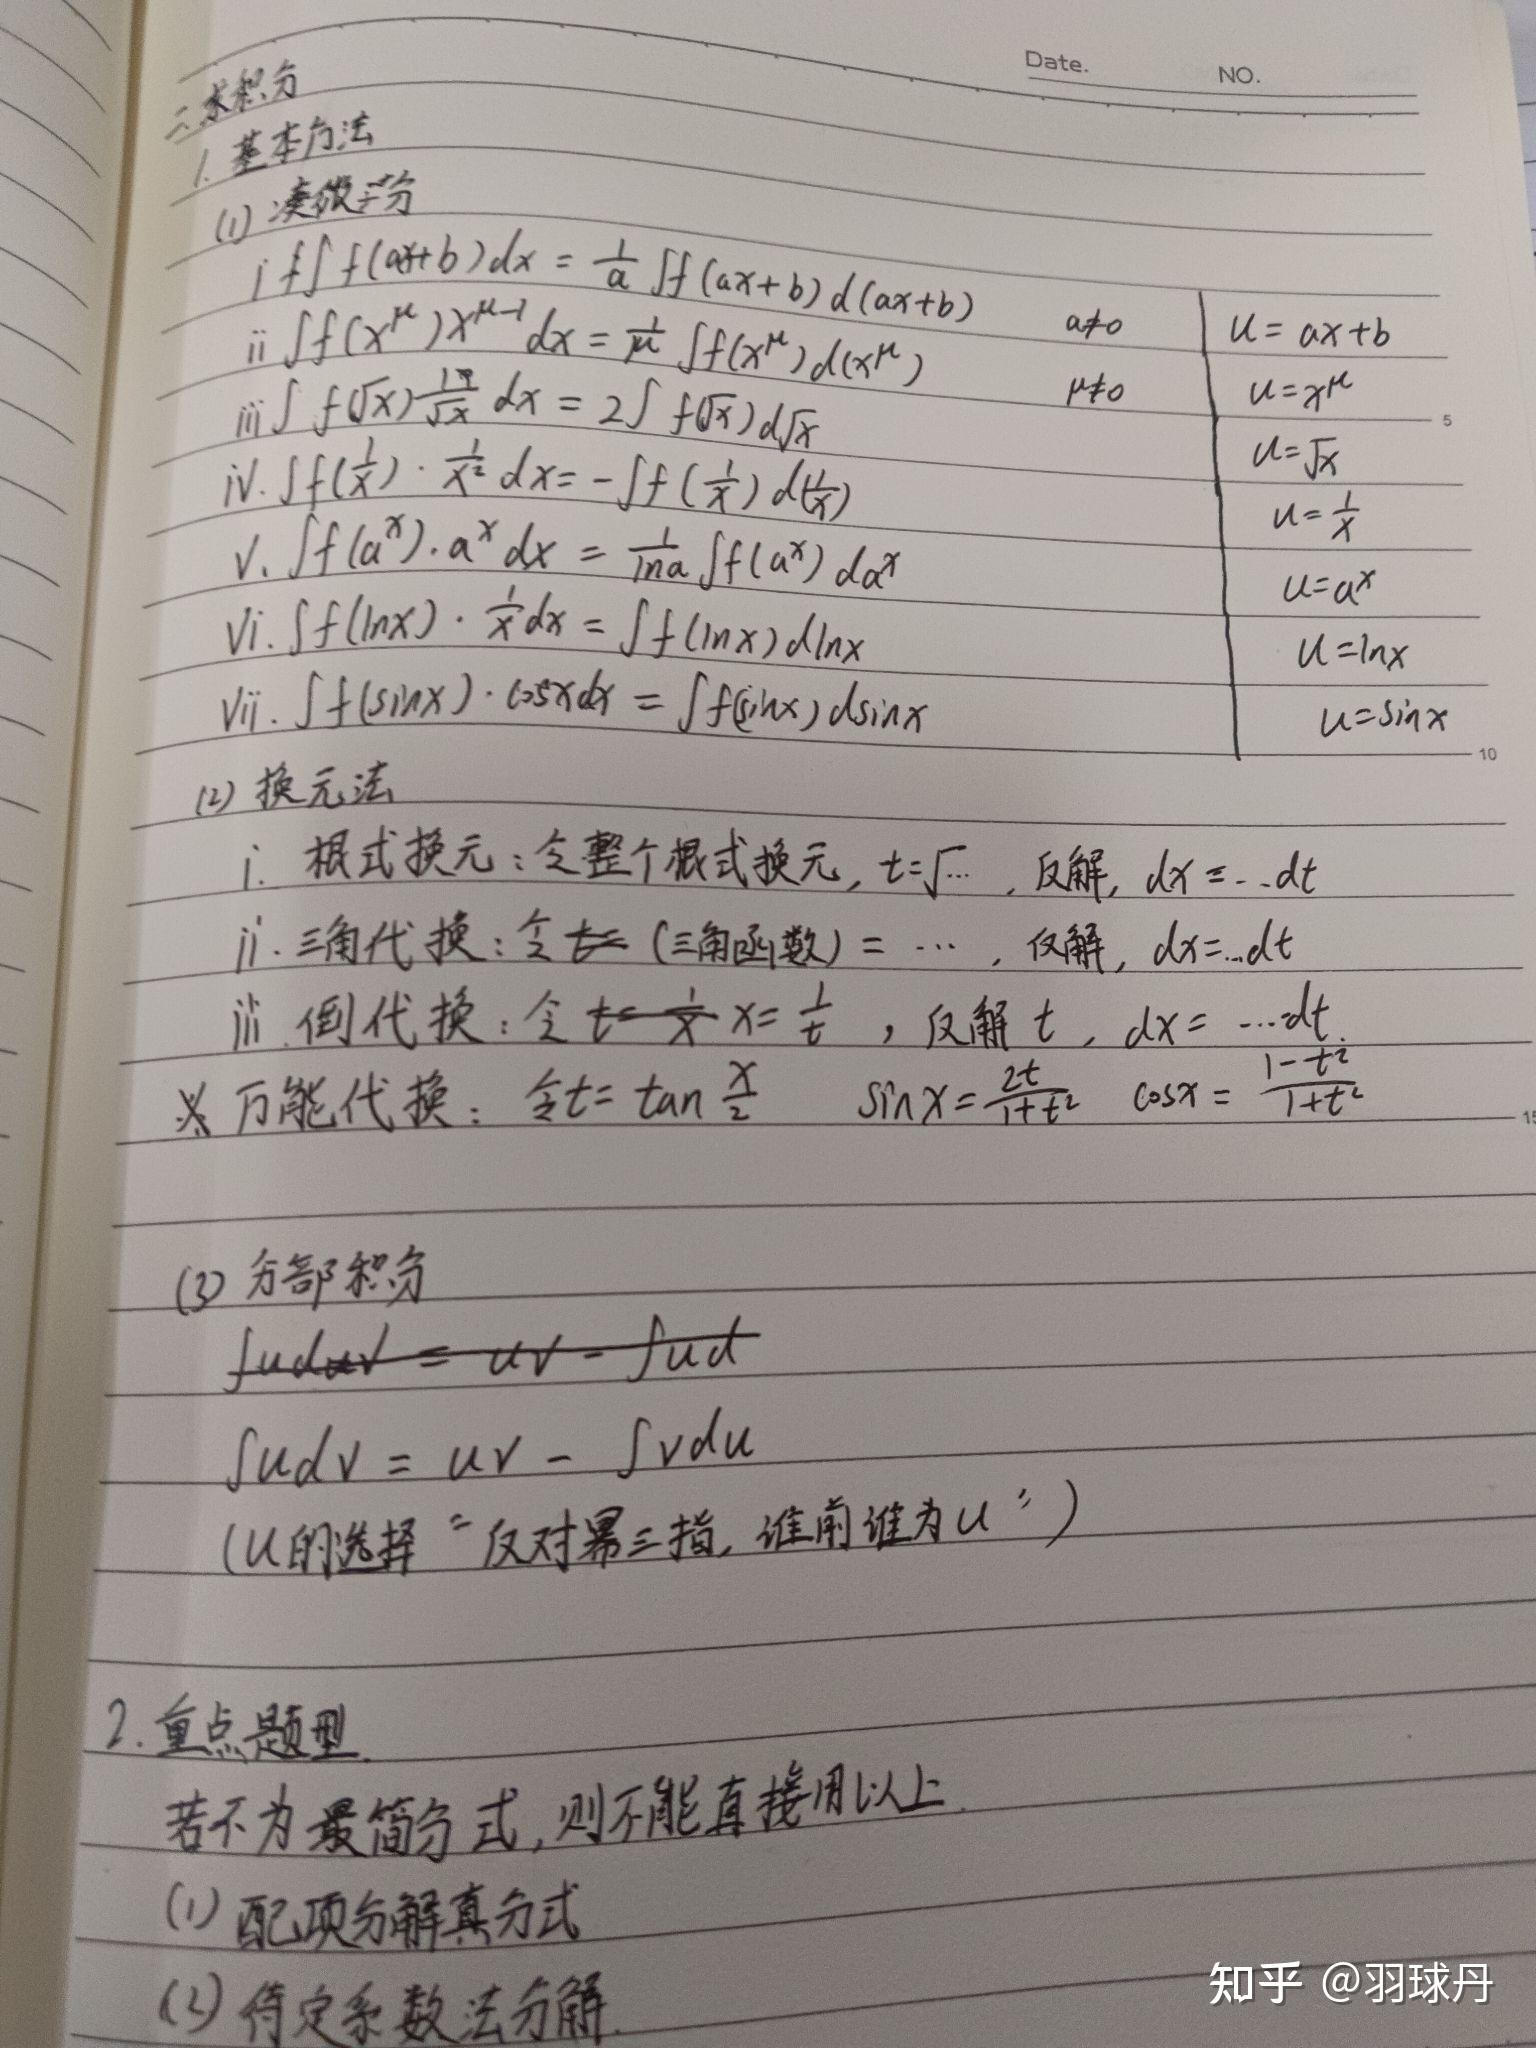 Date. NO.
二求积分
1. 基本方法
(1) 凑微分
i ∫f(ax+b)dx = 1/a ∫f(ax+b)d(ax+b) a≠0 u=ax+b
ii ∫f(x^μ)x^(μ-1)dx = 1/μ ∫f(x^μ)d(x^μ) μ≠0 u=x^μ
5
iii ∫f(√x) 1/√x dx = 2∫f(√x)d√x u=√x
iv. ∫f(1/x)·1/x² dx = -∫f(1/x)d(1/x) u=1/x
v. ∫f(a^x)·a^x dx = 1/lna ∫f(a^x)da^x u=a^x
vi. ∫f(lnx)·1/x dx = ∫f(lnx)dlnx u=lnx
vii. ∫f(sinx)·cosxdx = ∫f(sinx)dsinx u=sinx
10
(2) 换元法
i. 根式换元：令整个根式换元, t=√…, 反解, dx=…dt
ii. 三角代换：令 t= (三角函数) = …, 反解, dx=…dt
iii. 倒代换：令 t=1/x x=1/t, 反解 t, dx=…dt.
※ 万能代换：令t=tan x/2 sinx=2t/(1+t²) cosx=(1-t²)/(1+t²)
15
(3) 分部积分
∫uduv = uv - ∫ud
∫udv = uv - ∫vdu
(u的选择 "反对幂三指, 谁前谁为u")
2. 重点题型.
若不为最简分式, 则不能直接用以上.
(1) 配项分解真分式
(2) 待定系数法分解.
知乎 @羽球丹